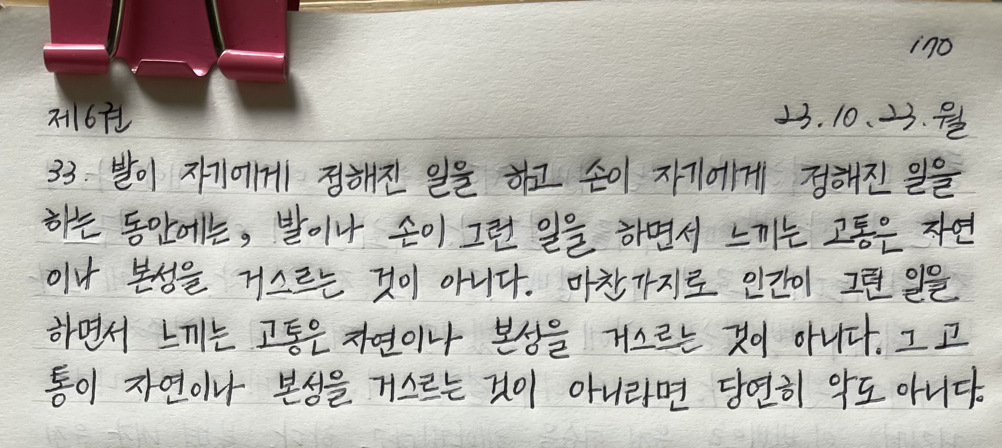 170
제6권 23.10.23.월
33. 발이 자기에게 정해진 일을 하고 손이 자기에게 정해진 일을
하는 동안에는, 발이나 손이 그런 일을 하면서 느끼는 고통은 자연
이나 본성을 거스르는 것이 아니다. 마찬가지로 인간이 그런 일을
하면서 느끼는 고통은 자연이나 본성을 거스르는 것이 아니다. 그 고
통이 자연이나 본성을 거스르는 것이 아니라면 당연히 악도 아니다.